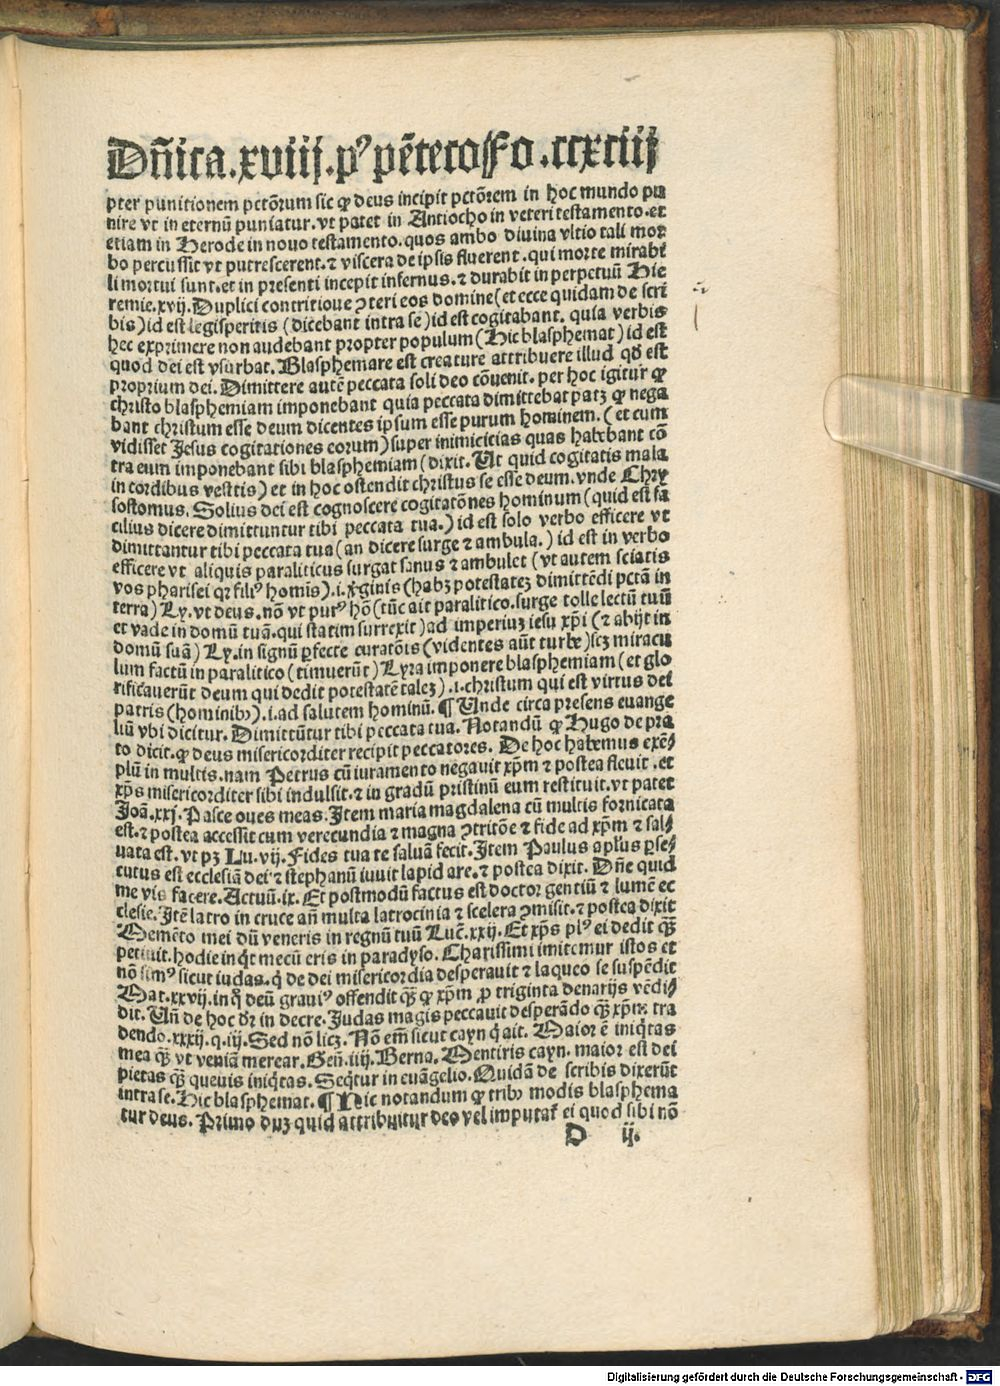 Dñica.xviij.pꝰ pẽtecos Fo.ccxciij
pter punitionem pctõrum sic ꝙ deus incipit pctõrem in hoc mundo pu
nire vt in eternũ puniatur.vt patet in Antiocho in veteri testamento.et
etiam in Herode in nouo testamento.quos ambo diuina vltio tali mor
bo percussit vt putrescerent.⁊ viscera de ipsis fluerent.qui morte mirabi
li mortui sunt.et in presenti incepit infernus.⁊ durabit in perpetuũ Hie
remie.xvij.Duplici contritione ꝯteri eos domine(et ecce quidam de scri
bis)id est legisperitis (dicebant intra se)id est cogitabant. quia verbis
hec exprimere non audebant propter populum(Hic blasphemat)id est
quod dei est vsurbat. Blasphemare est creature attribuere illud qd̃ est
proprium dei. Dimittere autẽ peccata soli deo cõuenit. per hoc igitur ꝙ
christo blasphemiam imponebant quia peccata dimittebat patꝫ ꝙ nega
bant christum esse deum dicentes ipsum esse purum hominem. (et cum
vidisset Jesus cogitationes eorum)super inimicicias quas habebant cõ
tra eum imponebant sibi blasphemiam(dixit. Ut quid cogitatis mala
in cordibus vestris) et in hoc ostendit christus se esse deum. vnde Chry
sostomus. Solius dei est cognoscere cogitatões hominum(quid est fa
cilius dicere dimittuntur tibi peccata tua.)id est solo verbo efficere vt
dimittantur tibi peccata tua(an dicere surge ⁊ ambula.)id est in verbo
efficere vt aliquis paraliticus surgat sanus ⁊ ambulet (vt autem sciatis
vos pharisei qꝛ filiꝰ homis̃).i.ṽginis(habꝫ potestateꝫ dimittẽdi pctã in
terra) Ly. vt deus.nõ vt purꝰ hõ(tũc ait paralitico.surge tolle lectũ tuũ
et vade in domũ tuã.qui statim surrexit)ad imperiuꝫ iesu xp̃i (⁊ abijt in
domũ suã) Ly.in signũ ꝑfecte curatõis(videntes aũt turbe)scꝫ miracu
lum factũ in paralitico(timuerũt)Lyra imponere blasphemiam(et glo
rificauerũt deum qui dedit potestatẽ taleꝫ).i.christum qui est virtus dei
patris(hominibꝰ).i.ad salutem hominũ. ¶ Unde circa presens euange
liũ vbi dicitur. Dimittũtur tibi peccata tua. Notandũ ꝙ Hugo de pra
to dicit.ꝙ deus misericorditer recipit peccatores. De hoc habemus exẽ⸗
plũ in multis.nam Petrus cũ iuramento negauit xp̃m ⁊ postea fleuit.et
xp̃s misericorditer sibi indulsit.⁊ in gradũ pristinũ eum restituit.vt patet
Joã.xxj.Pasce oues meas.Item maria magdalena cũ multis fornicata
est.⁊ postea accessit cum verecundia ⁊ magna ꝯtritõe ⁊ fide ad xp̃m ⁊ sal⸗
uata est. vt pꝫ Lu.vij.Fides tua te saluã fecit.Item Paulus ap̃lus ꝑse⸗
cutus est ecclesiã dei ⁊ stephanũ iuuit lapidare.⁊ postea dixit. Dñe quid
me vis facere. Actuũ.ix. Et postmodũ factus est doctor gentiũ ⁊ lumẽ ec
clesie.Itẽ latro in cruce añ multa latrocinia ⁊ scelera ꝯmisit.⁊ postea dixit
Memẽto mei dũ veneris in regnũ tuũ Luc̃.xxij.Et xp̃s plꝰ ei dedit q̃ꝫ
petiuit.hodie inqͥt mecũ eris in paradyso. Charissimi imitemur istos et
nõ simꝰ sicut iudas.qͥ de dei misericordia desperauit ⁊ laqueo se suspẽdit
Mat.xxvij.in quo deũ grauiꝰ offendit q̃ꝫ ꝙ xp̃m ꝓ triginta denarijs vẽdi⸗
dit. Uñ de hoc dr̃ in decre. Judas magis peccauit desperãdo q̃ꝫ xp̃m tra
dendo.xxxij.q.iij. Sed nõ licꝫ. Nõ em̃ sicut cayn qͥ ait. Maior ẽ iniqͥtas
mea q̃ꝫ vt veniã merear.Geñ.iiij.Berna. Mentiris cayn. maior est dei
pietas q̃ꝫ queuis iniqͥtas. Seqͥtur in euãgelio.Quidã de scribis dixerũt
intra se.Hic blasphemat. ¶ Hic notandum ꝙ tribꝰ modis blasphema
tur deus. Primo dũ quid attribuitur deo vel imputat̃ ei quod sibi nõ
D ij.
Digitalisierung gefördert durch die Deutsche Forschungsgemeinschaft - DFG